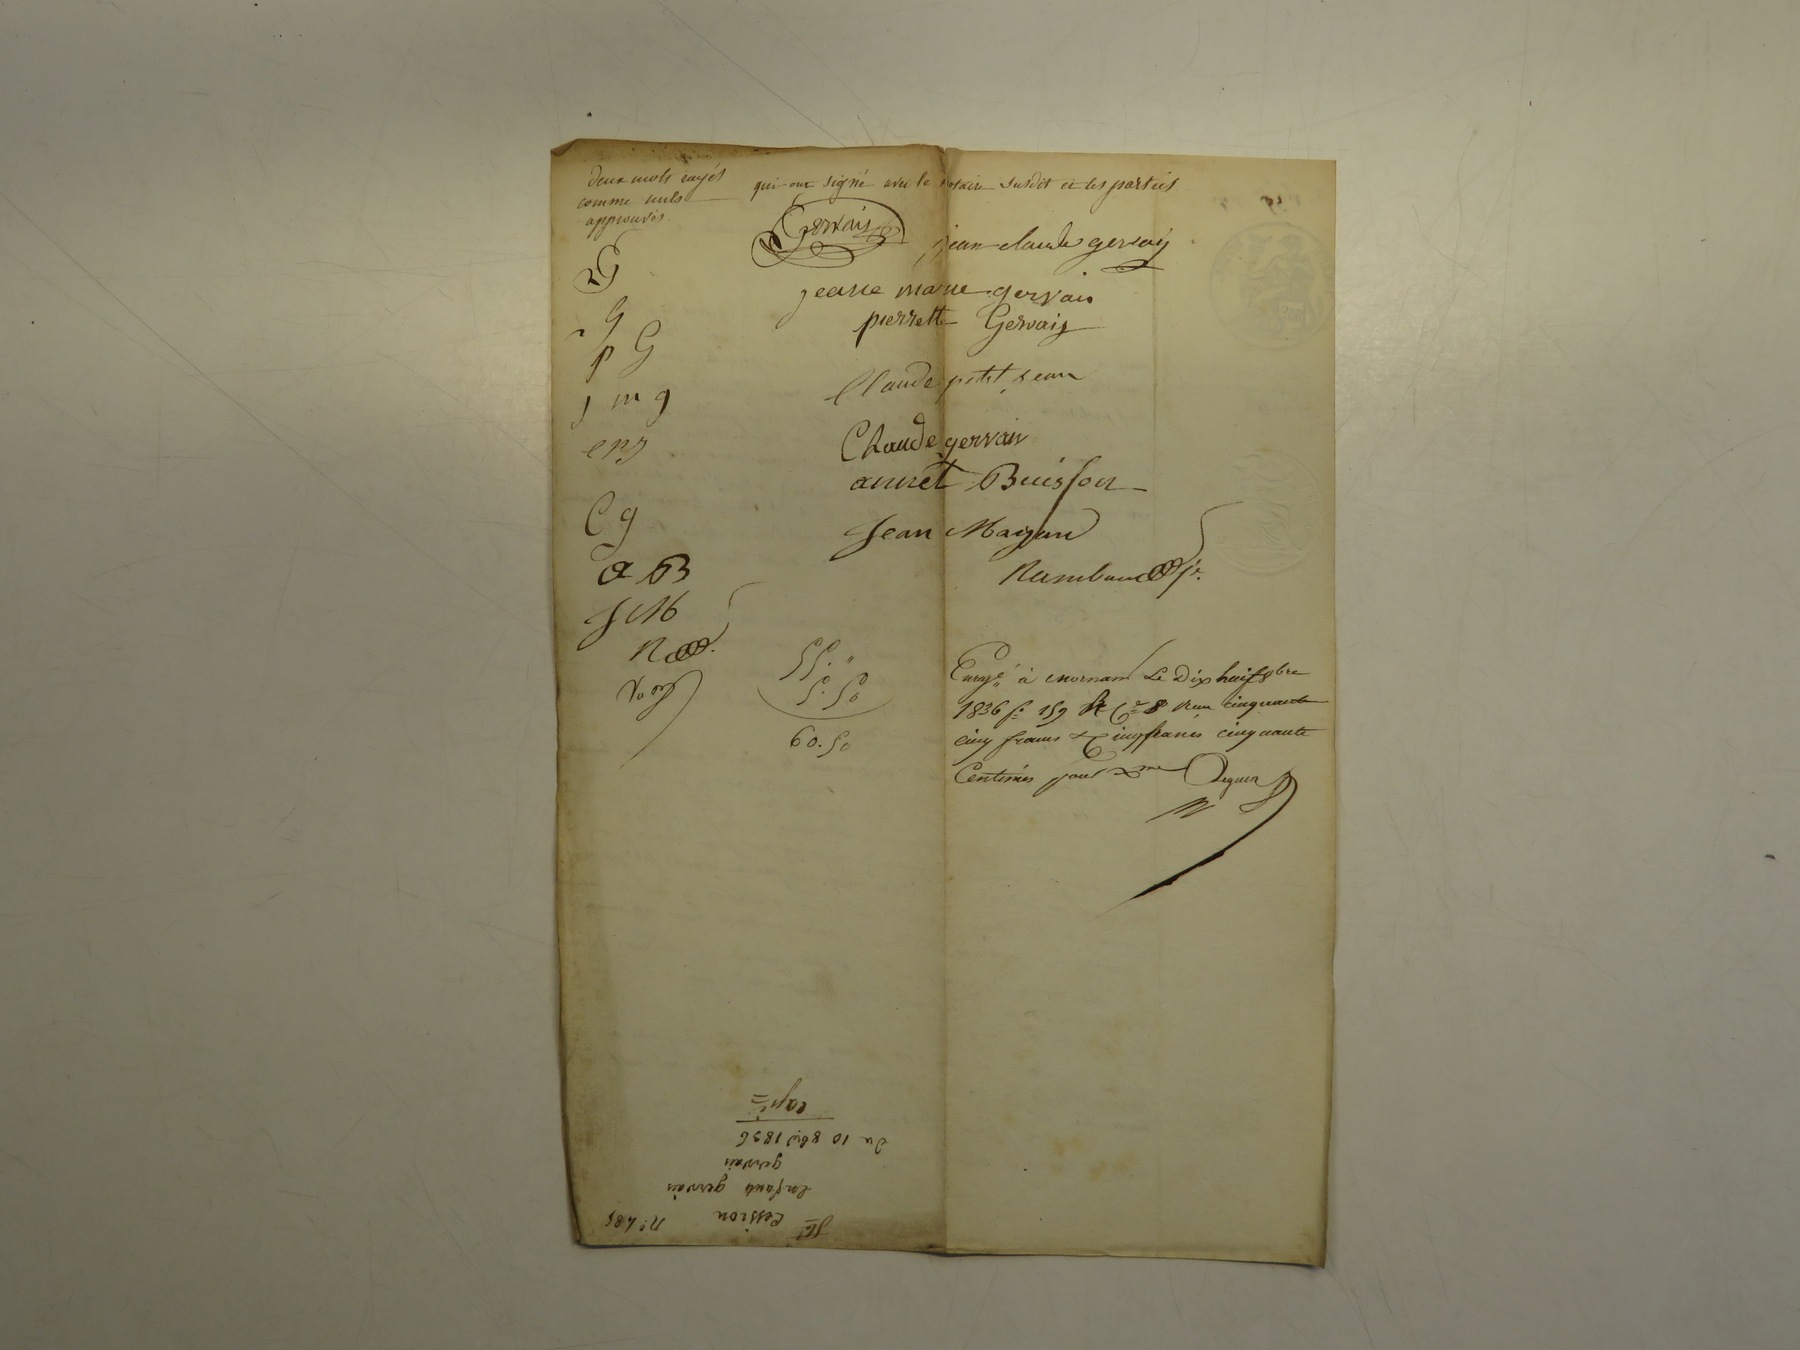 Deux mots rayés
comme nuls
approuvés.
qui ont signé avec le notaire susdit et les parties
Gervais
jean claude gervais
jeane marie gervais
pierrette Gervais
Claude petit jean
Claude gervais
annet Buisson
Jean Magan
Rambaud
G
p G
j m g
C g
a B
J M
R
55. "
5. 50
60. 50
Enreg.é à mornant Le Dix huit 8bre
1836 f.o 159 R.o C.e 8 Reçu cinquante
cinq francs & Cinq francs cinquante
Centimes pour Xme
Cession n.o 485
Enfants gervais
gervais
Du 10 8bre 1836